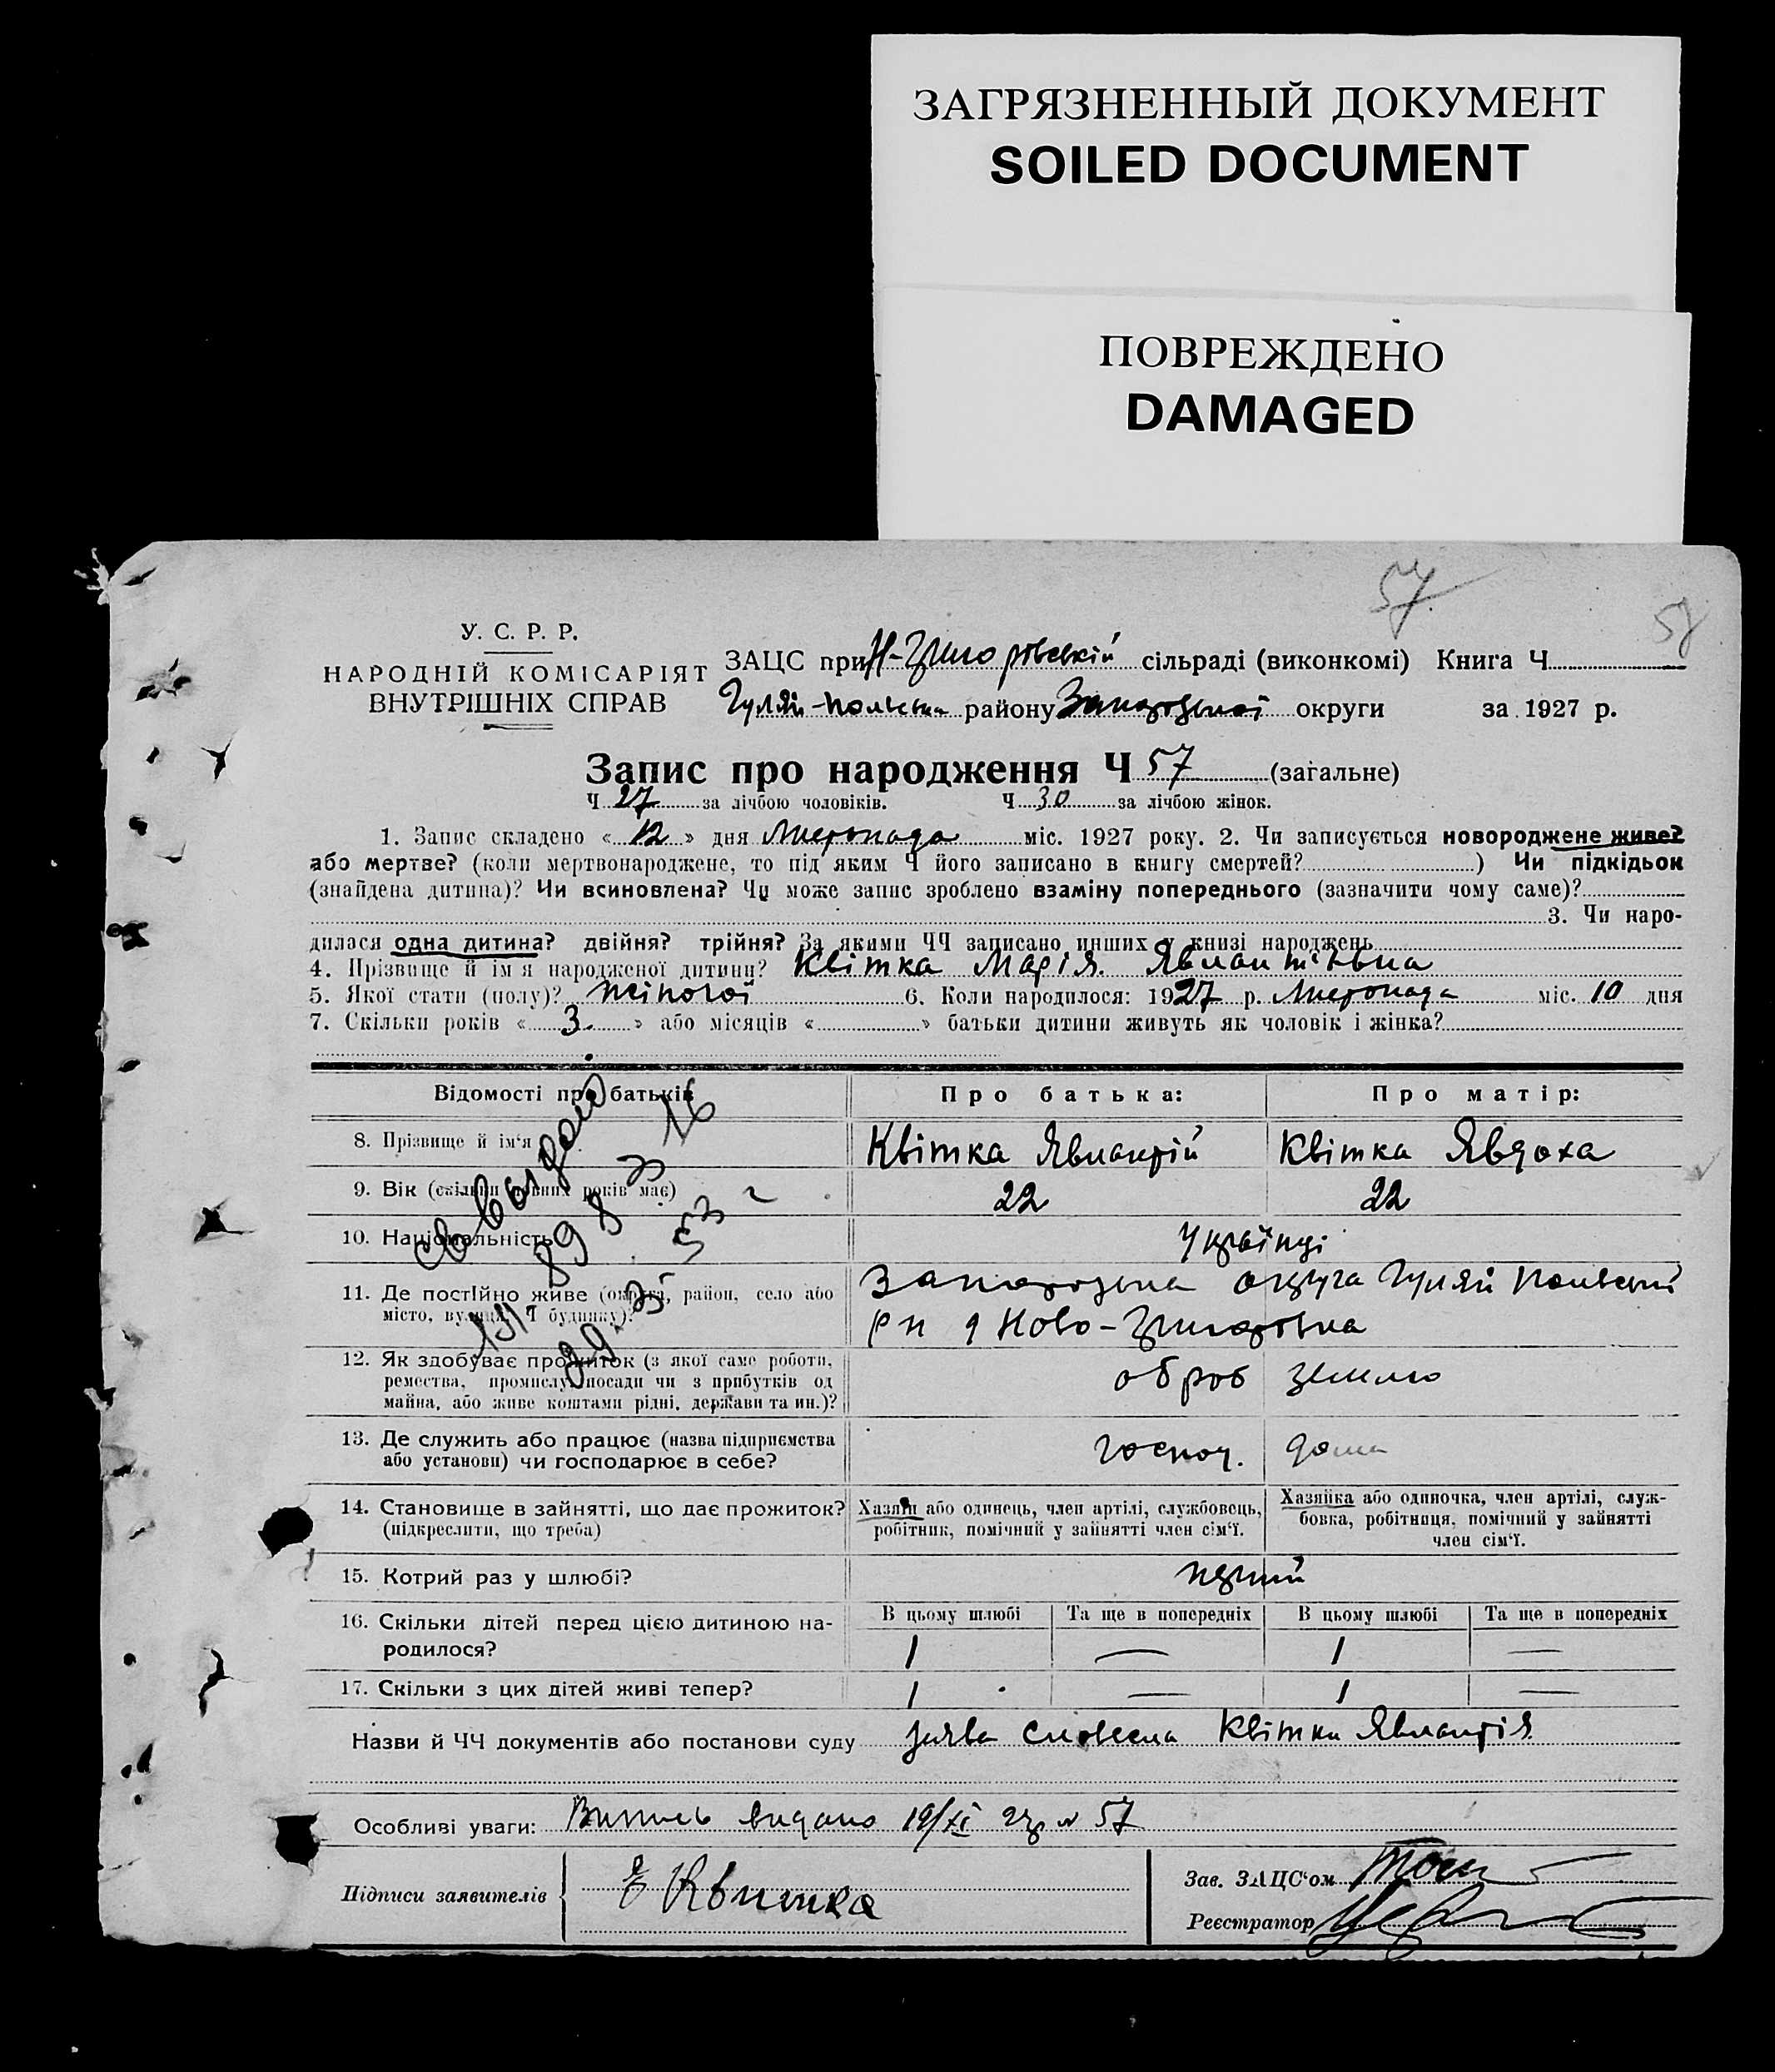 ЗАГРЯЗНЕННЫЙ ДОКУМЕНТ
SOILED DOCUMENT
ПОВРЕЖДЕНО
DAMAGED
57
57
У. С. Р. Р.
НАРОДНІЙ КОМІСАРІЯТ
ВНУТРІШНІХ СПРАВ
ЗАЦС при Н-Григоровській сільраді (виконкомі) Книга Ч
Гуляй-польськ району Запорозької округи за 1927 р.
Запис про народження Ч 57 (загальне)
Ч 27 за лічбою чоловіків. Ч 30 за лічбою жінок.
1. Запис складено « 12 » дня Листопада міс. 1927 року. 2. Чи записується новороджене живе?
або мертве? (коли мертвонароджене, то під яким Ч його записано в книгу смертей? ) Чи підкідьок
(знайдена дитина)? Чи всиновлена? Чи може запис зроблено взаміну попереднього (зазначити чому саме)?
3. Чи наро-
дилася одна дитина? двійня? трійня? За якими ЧЧ записано инших у книзі народжень
4. Прізвище й ім'я народженої дитини? Квітка Марія Явлантівна
5. Якої статі (полу)? жіночої 6. Коли народилося: 1927 р. Листопада міс. 10 дня
7. Скільки років « 3 » або місяців « » батьки дитини живуть як чоловік і жінка?
Відомості про батьків Про батька: Про матір:
8. Прізвище й ім'я Квітка Явлантій Квітка Явдоха
9. Вік (скільки повних років має) 22 22
10. Національність Українці
11. Де постійно живе (округа, район, село або
місто, вулиця, Ч будинку)?
Запорозька округа Гуляй Польський
рн Ново-Григоровка
12. Як здобуває прожиток (з якої саме роботи,
ремества, промислу, посади чи з прибутків од
майна, або живе коштами рідні, держави та ин.)?
оброб землю
13. Де служить або працює (назва підприємства
або установи) чи господарює в себе?
господ. дома
14. Становище в зайнятті, що дає прожиток?
(підкреслити, що треба)
Хазяїн або одинець, член артілі, службовець,
робітник, помічний у зайнятті член сім'ї.
Хазяйка або одиночка, член артілі, служ-
бовка, робітниця, помічний у зайнятті
член сім'ї.
15. Котрий раз у шлюбі? перший
16. Скільки дітей перед цією дитиною на-
родилося?
В цьому шлюбі Та ще в попередніх В цьому шлюбі Та ще в попередніх
1 — 1 —
17. Скільки з цих дітей живі тепер? 1 — 1 —
Назви й ЧЧ документів або постанови суду заява словесна Квітки Явлантія
Особливі уваги: Випись видано 19/XI 27р № 57
Підписи заявителів Е Квитка
Зав. ЗАЦС'ом
Реєстратор
св выдано